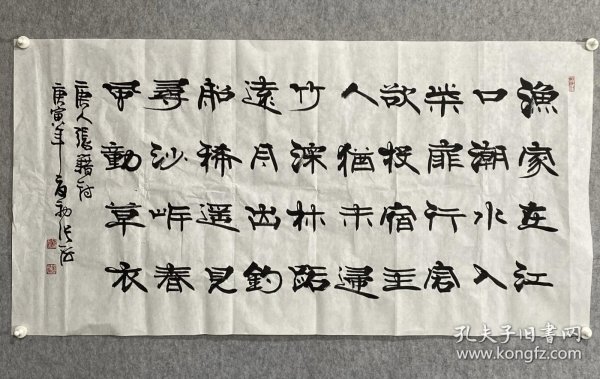 漁家在江
口潮水入
柴扉行客
欲投宿主
人猶未歸
竹深林路
遠月出釣
船稀遥見
尋沙岸春
風動草衣
唐人張籍詩
庚寅年夏初張
孔夫子旧书网
www.kongfz.com